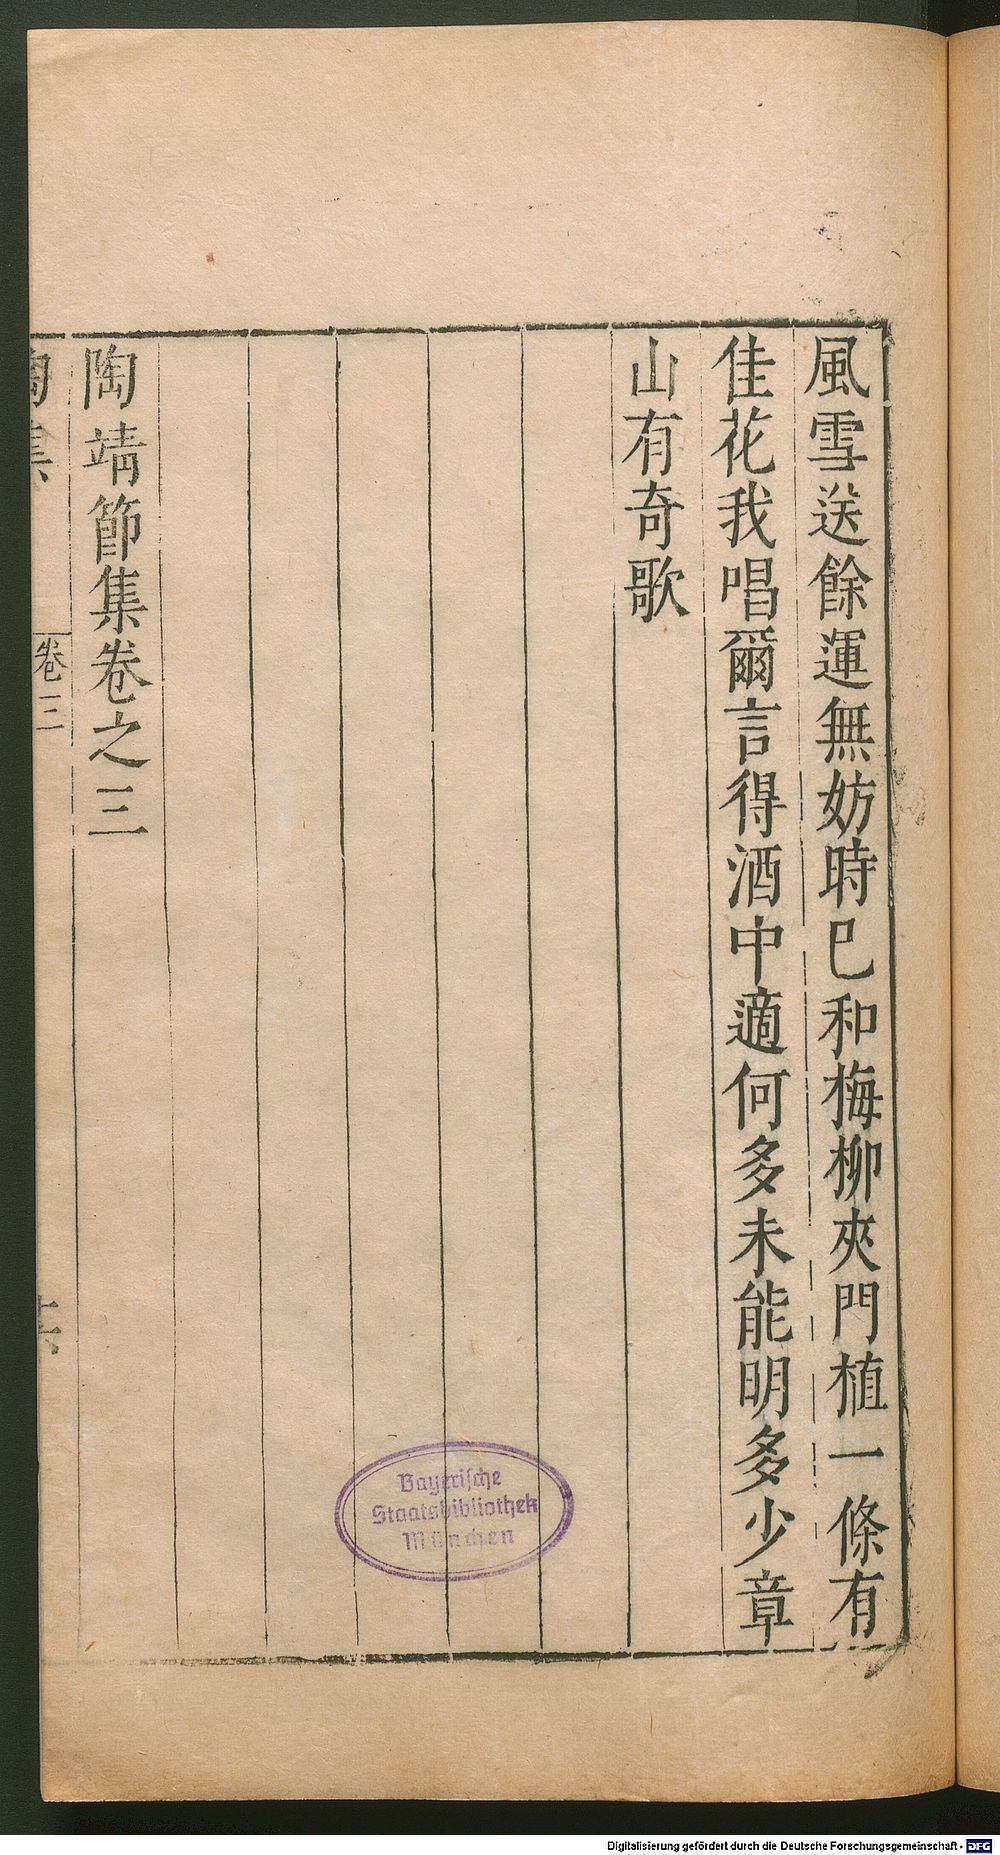 風雪送餘運無妨時已和梅柳夾門植一條有
佳花我唱爾言得酒中適何多未能明多少章
山有奇歌
陶靖節集卷之三
陶集
卷三
十六
Bayerische
Staatsbibliothek
München
Digitalisierung gefördert durch die Deutsche Forschungsgemeinschaft - DFG